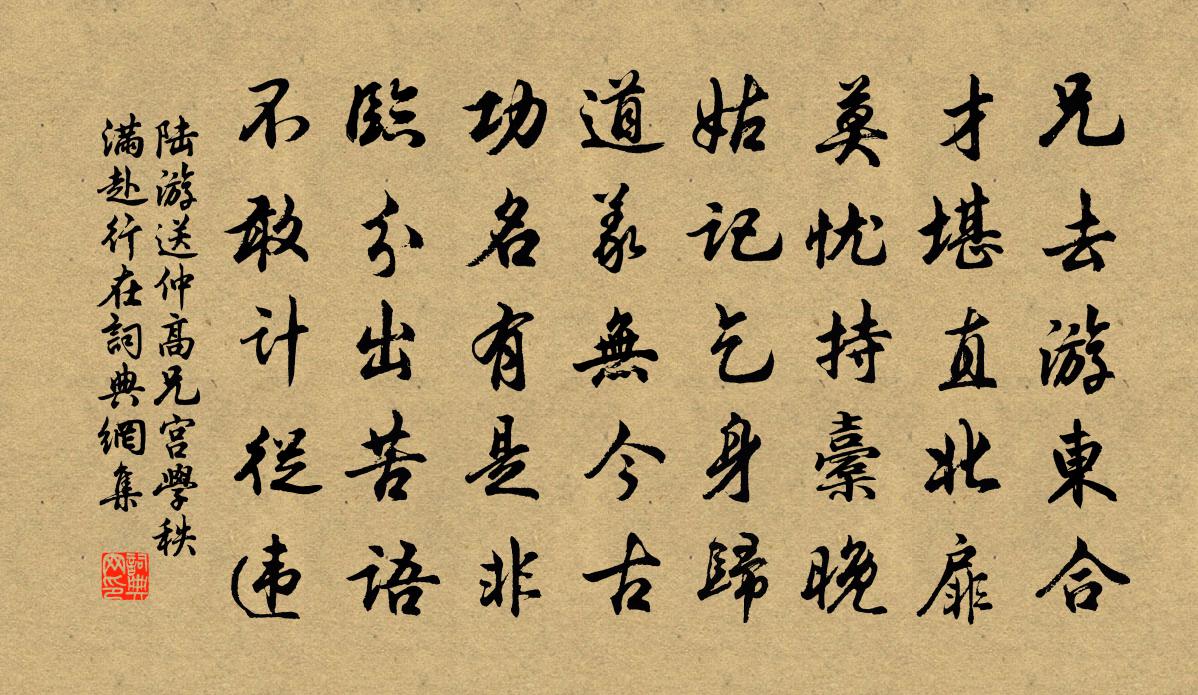 兄去游東合
才堪直北扉
莫忧持橐晚
姑记乞身歸
道義無今古
功名有是非
臨分出苦语
不敢计從违
陆游送仲高兄宫學秩
满赴行在詞典網集
詞典
网印